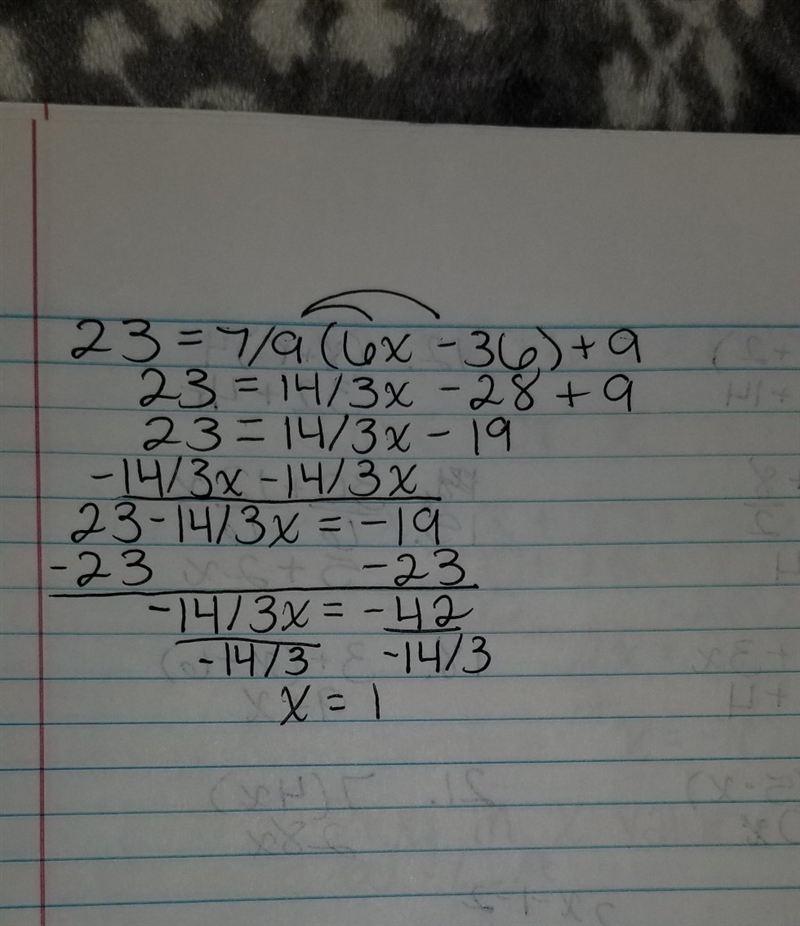 23 = 7/9(6x - 36) + 9
23 = 14/3x - 28 + 9
23 = 14/3x - 19
-14/3x -14/3x
23 - 14/3x = -19
-23 -23
-14/3x = -42
-14/3 -14/3
x = 1
21. 7(4x)
28x